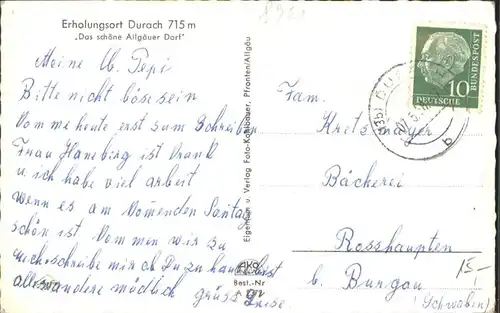 Erholungsort Durach 715 m
„Das schöne Allgäuer Dorf"
Meine lb. Pepi
Bitte nicht böse sein
komme heute erst zum Schreiben
Frau Haneburg ist krank
u. ich habe viel arbeit
wenn es am kommenden Sontag
schön ist kommen wir zu
euch schreibe mir ob Du zu hause bist
alles andere mündlich grüss Luise
Eigentum u. Verlag Foto-Kohlbauer, Pfronten/Allgäu
ako
Best.-Nr
A
10
DEUTSCHE
BUNDESPOST
(13b)
Fam.
Kretzmayer
Bäckerei
Rosshaupten
b. Burgau
(Schwaben)
15,-